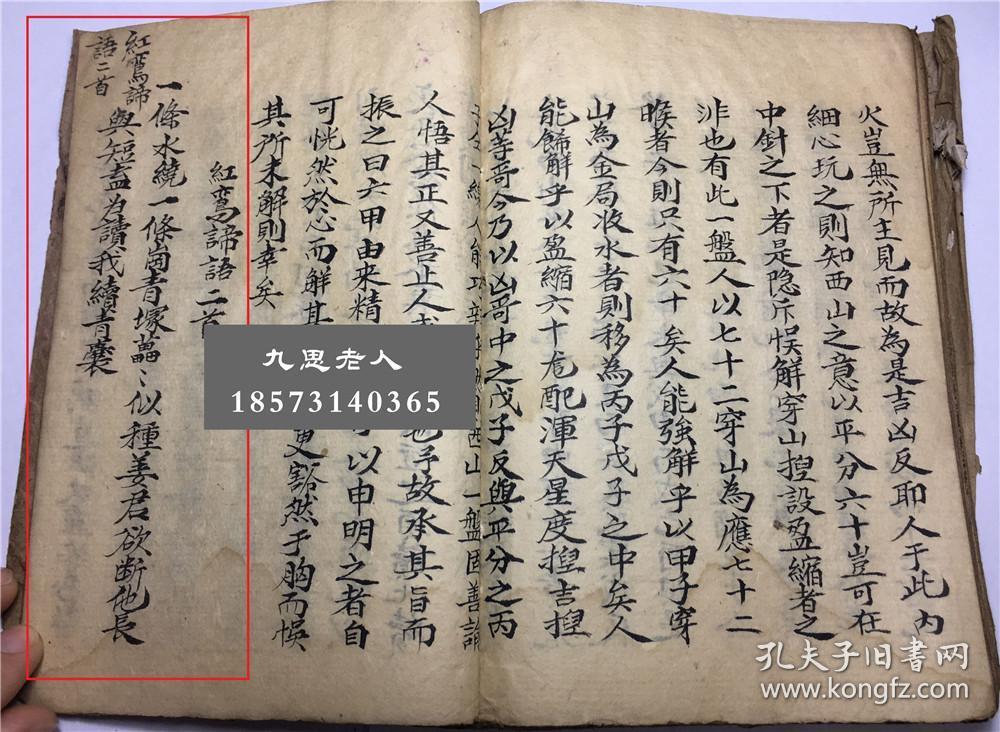 火豈無所主見而故為是吉凶反耶人于此內
細心玩之則知西山之意以平分六十豈可在
中針之下者是隐斥悮解穿山揑設盈縮者之
非也有此一盤人以七十二穿山為應七十二
㬋者今則只有六十矣人能強解乎以甲子穿
山為金局收水者則移為丙子戊子之中矣人
能歸解乎以盈縮六十尨配渾天星度揑吉揑
凶等哥今乃以凶哥中之戊子反與平分之丙
西山一盤固善
人悟其正又善止人 也予故承其旨而
振之曰六甲由来精 以申明之者自
可恍然於心而解其 更豁然于胸而悞
其所未解則幸矣
紅鸞諦語二首
一條水繞一條崗青塚纍〻似種姜君欲断他長
與短盖为讀我續青囊
紅鸞諦
語二首
九思老人
18573140365
孔夫子旧書网
www.kongfz.com